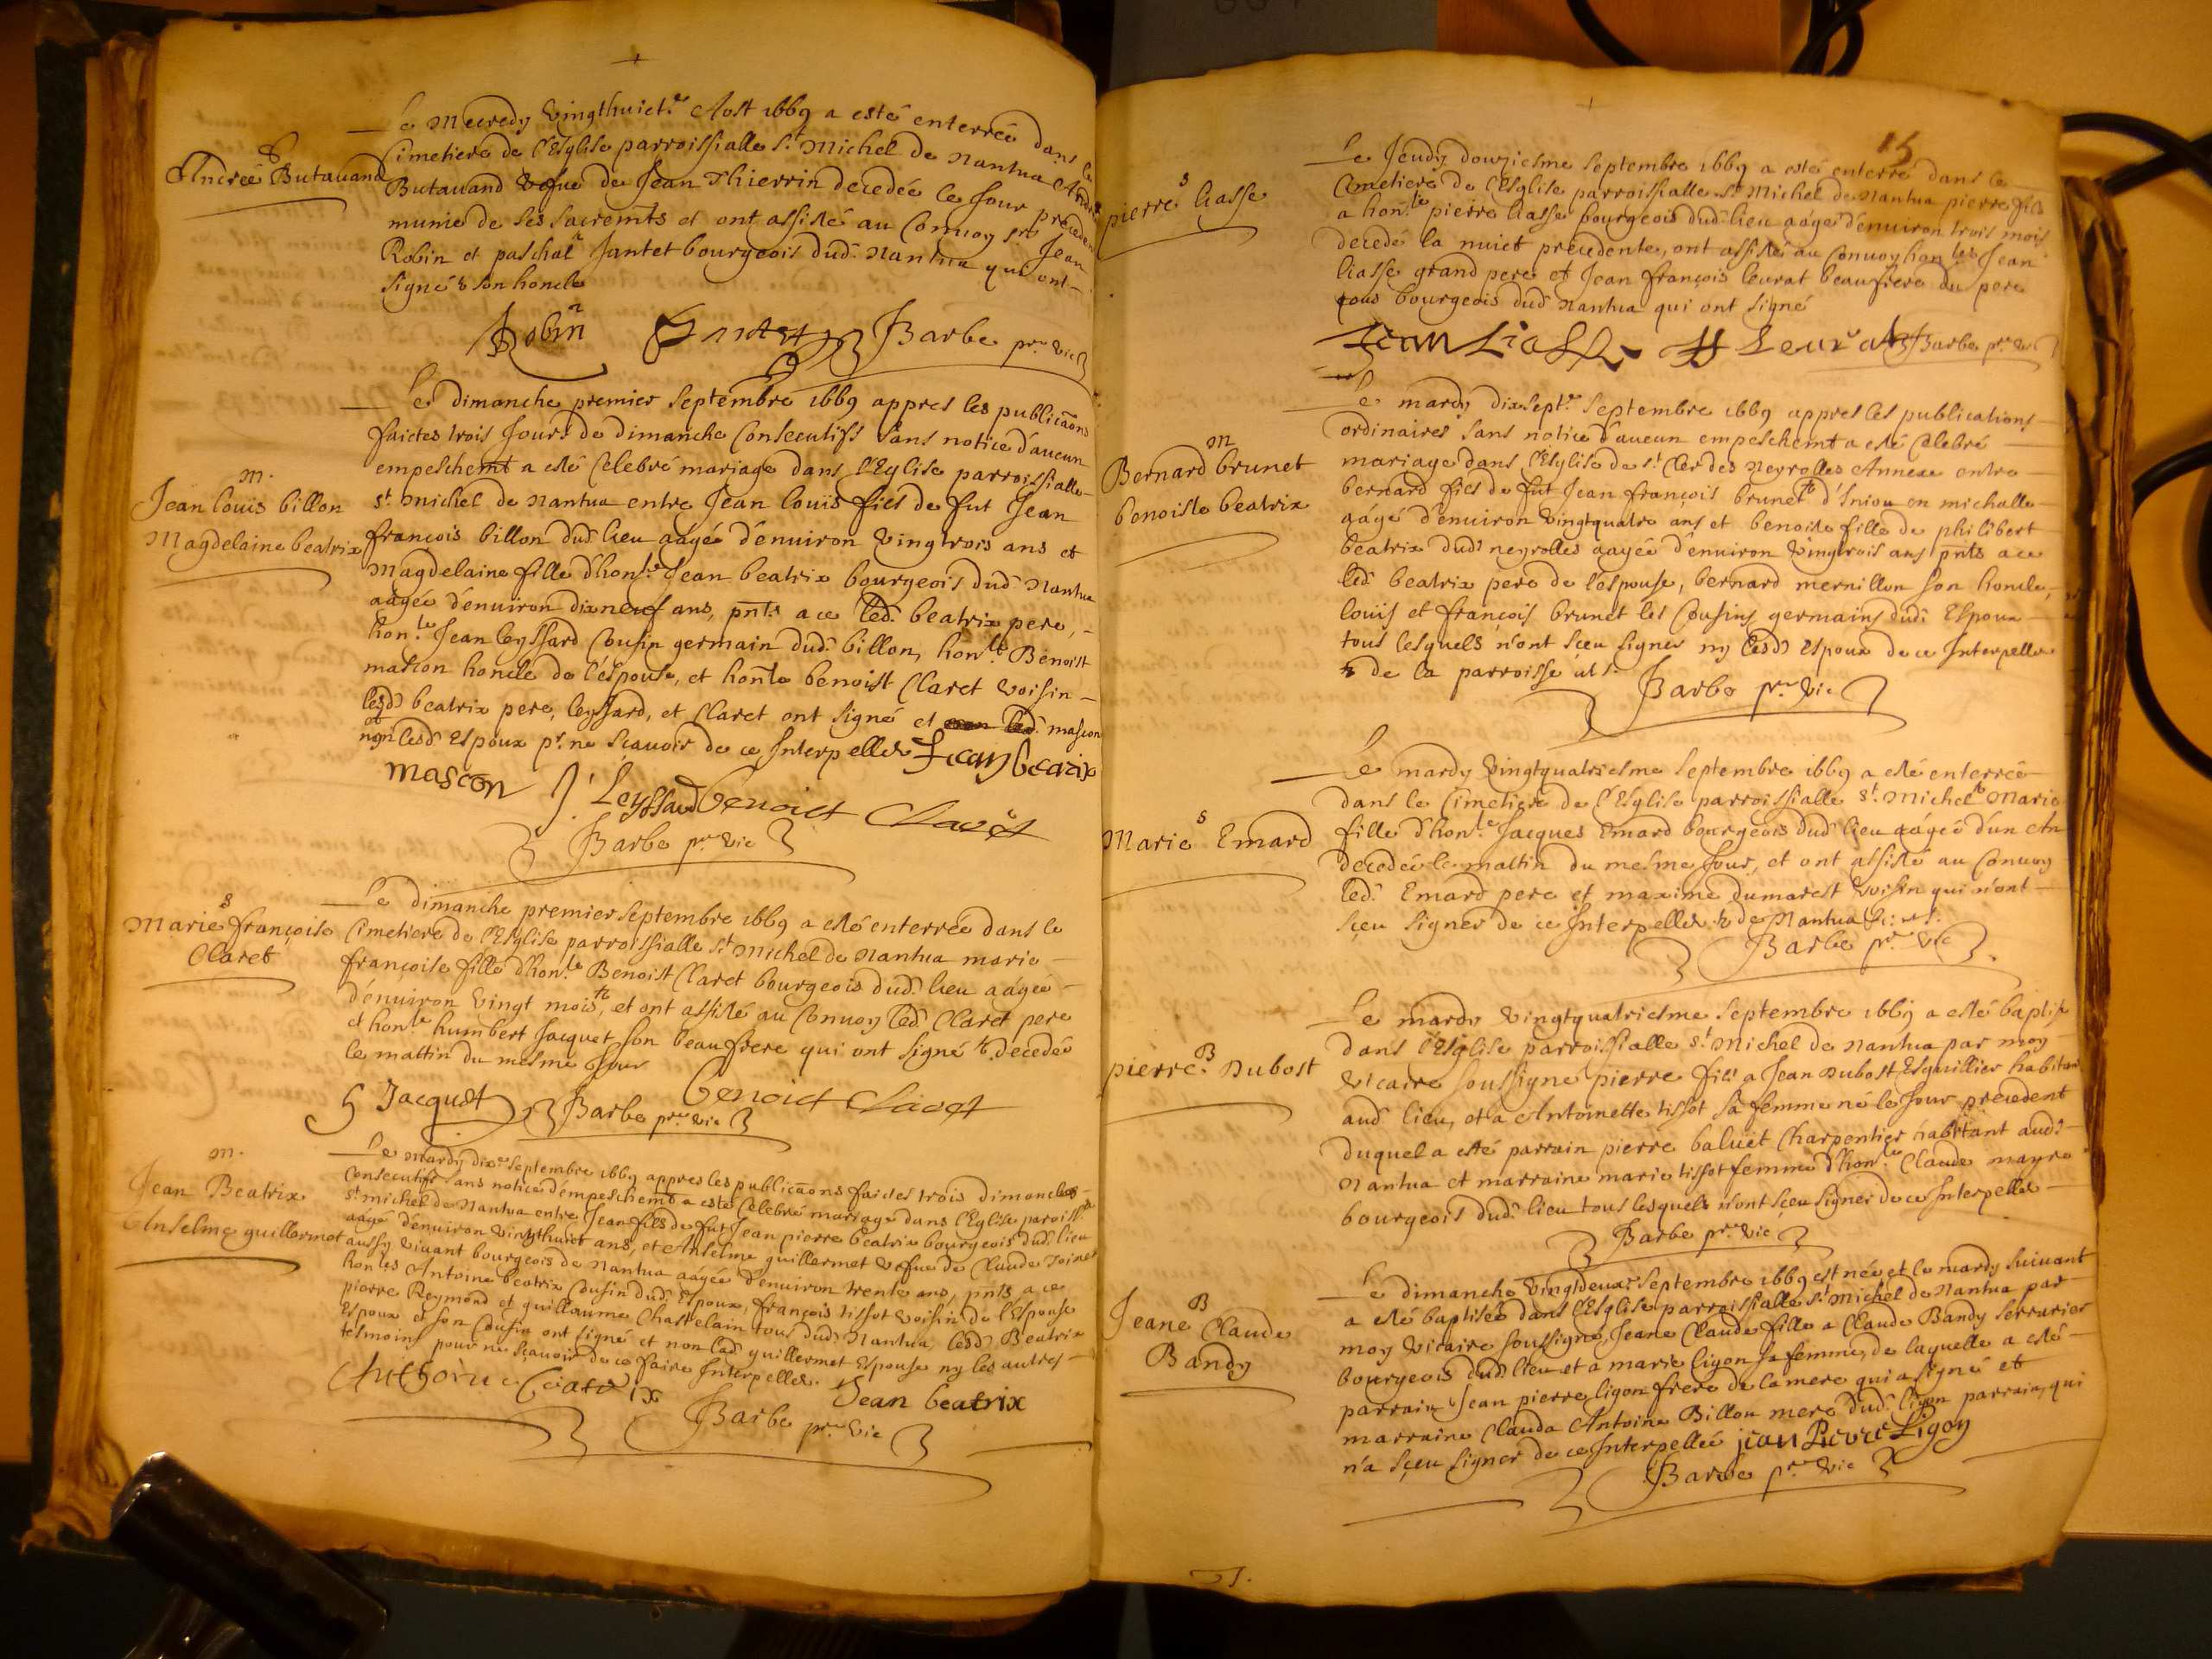 S
Andrée Butavand
Le Mecredy vingthuict.e Aost 1669 a esté enterrée dans le
Cimetiere de l'Esglise parroissialle St Michel de Nantua Andrée
Butavand vefue de Jean Thierrin decedée le Jour precedent
munie de ses sacremts et ont assisté au Convoy srs Jean
Robin et paschal Jantet bourgeois dud. Nantua qui ont
signé & son honcle
Robin Jantet Barbe pre vic
m.
Jean louis billon
Magdelaine beatrix
Le dimanche premier Septembre 1669 appres les publicaons
faictes trois Jours de dimanche Consecutifs sans notice d'aucun
empeschemt a esté Celebré mariage dans l'Eglise parroissialle
St. Michel de Nantua entre Jean louis fils de fut Jean
françois billon dud. lieu aagé d'enuiron vingtrois ans et
Magdelaine fille d'hon.le Jean beatrix bourgeois dud. Nantua
aagée d'enuiron dixneuf ans, pnts. a ce led. beatrix pere,
hon.le Jean leyssard Cousin germain dud. billon, hon.le Benoist
mascon honcle de l'espouse, et honle benoist Claret voisin
lesd. beatrix pere, leyssard, et Claret ont signé et led. mascon
et
non lesd. Espoux pr. ne scauoir de ce Interpellés Jean beatrix
mascon J. Leyssard benoist Claret
Barbe pre vic
S
Marie françoise
Claret
Le dimanche premier Septembre 1669 a esté enterrée dans le
Cimetiere de l'Esglise parroissialle St Michel de Nantua marie
françoise fille d'hon.le Benoist Claret bourgeois dud. lieu aagée
d'enuiron vingt mois, et ont assisté au Convoy led. Claret pere
et honle humbert Jacquet son beaufrere qui ont signé decedée
le mattin du mesme Jour
h Jacquet Barbe pre vic benoist Claret
m.
Jean Beatrix
Anselme guillermet
Le mardy dixe Septembre 1669 appres les publicaons faictes trois dimanches
Consecutifs sans notice d'empeschemt a esté Celebré mariage dans l'Eglise parroissle
St michel de Nantua entre Jean fils de fut Jean pierre beatrix bourgeois dud. lieu
aagé d'enuiron vingthuict ans, et Anselme guillermet vefue de Claude Joinet
aussy viuant bourgeois de Nantua aagée d'enuiron trente ans, pnts a ce
honles Antoine beatrix Cousin dud. Espoux, françois tissot voisin de l'Espouse
pierre Reymond et guillaume Chastelain tous dud. Nantua, lesd. Beatrix
Espoux et son Cousin ont signé et non lad. guillermet Espouse ny les autres
tesmoins pour ne scauoir de ce faire Interpellés.
Anthoine beatrix Jean beatrix
Barbe pre vic
15
S
pierre liasse
Le Jeudy douziesme Septembre 1669 a esté enterré dans le
Cimetiere de l'Esglise parroissialle St Michel de Nantua pierre fils
a hon.le pierre liasse bourgeois dud. lieu aagé d'enuiron trois mois
decedé la nuict precedente, ont assisté au Convoy honles Jean
liasse grand pere et Jean françois leurat beaufrere du pere
tous bourgeois dud. Nantua qui ont signé
Jean Liasse Leurat Barbe pre vic
m
Bernard brunet
benoiste beatrix
Le mardy dixsept.e Septembre 1669 appres les publications
ordinaires sans notice d'aucun empeschemt a esté Celebré
mariage dans l'Esglise de St Cler des Neyrolles Annexe entre
bernard fils de fut Jean françois brunet d'Iniou en michalle
aagé d'enuiron vingtquatre ans et benoiste fille de philibert
beatrix dud. neyrolles aagée d'enuiron vingtrois ans pnts a ce
led. beatrix pere de l'espouse, bernard mernillon son honcle,
louis et françois brunet les Cousins germains dud. Espoux
tous lesquels n'ont sceu signer ny lesd. Espoux de ce Interpellés
de la parroisse ut s.
Barbe pre vic
S
Marie Emard
Le mardy vingtquatriesme Septembre 1669 a esté enterrée
dans le Cimetiere de l'Esglise parroissialle St. Michel Marie
fille d'hon.le Jacques Emard bourgeois dud. lieu aagée d'un An
decedée le mattin du mesme Jour, et ont assisté au Convoy
led. Emard pere et maxime dumarest voisin qui n'ont
sceu signer de ce Interpellés de Nantua
Barbe pre vic
B
pierre Dubost
Le mardy vingtquatriesme Septembre 1669 a esté baptisé
dans l'Esglise parroissialle St Michel de Nantua par moy
vicaire soussigné pierre fils a Jean Dubost Esguillier habitant
aud. lieu, et a Antoinette tissot sa femme né le Jour precedent
duquel a esté parrain pierre baluet Charpentier habitant aud.
Nantua et marraine marie tissot femme d'hon.le Claude mayre
bourgeois dud. lieu tous lesquels n'ont sceu signer de ce Interpellés
Barbe pre vic
B
Jeane Claude
Bandy
Le dimanche vingtdeuxe Septembre 1669 est née et le mardy suiuant
a esté baptisée dans l'Esglise parroissialle St Michel de Nantua par
moy vicaire soussigné, Jeane Claude fille a Claude Bandy serrurier
bourgeois dud. lieu et a marie ligon sa femme, de laquelle a esté
parrain Jean pierre ligon frere de la mere qui a signé et
marraine Clauda Antoine Billon mere dud. ligon parrain, qui
n'a sceu signer de ce Interpellée jean Pierre Ligon
Barbe pre vic